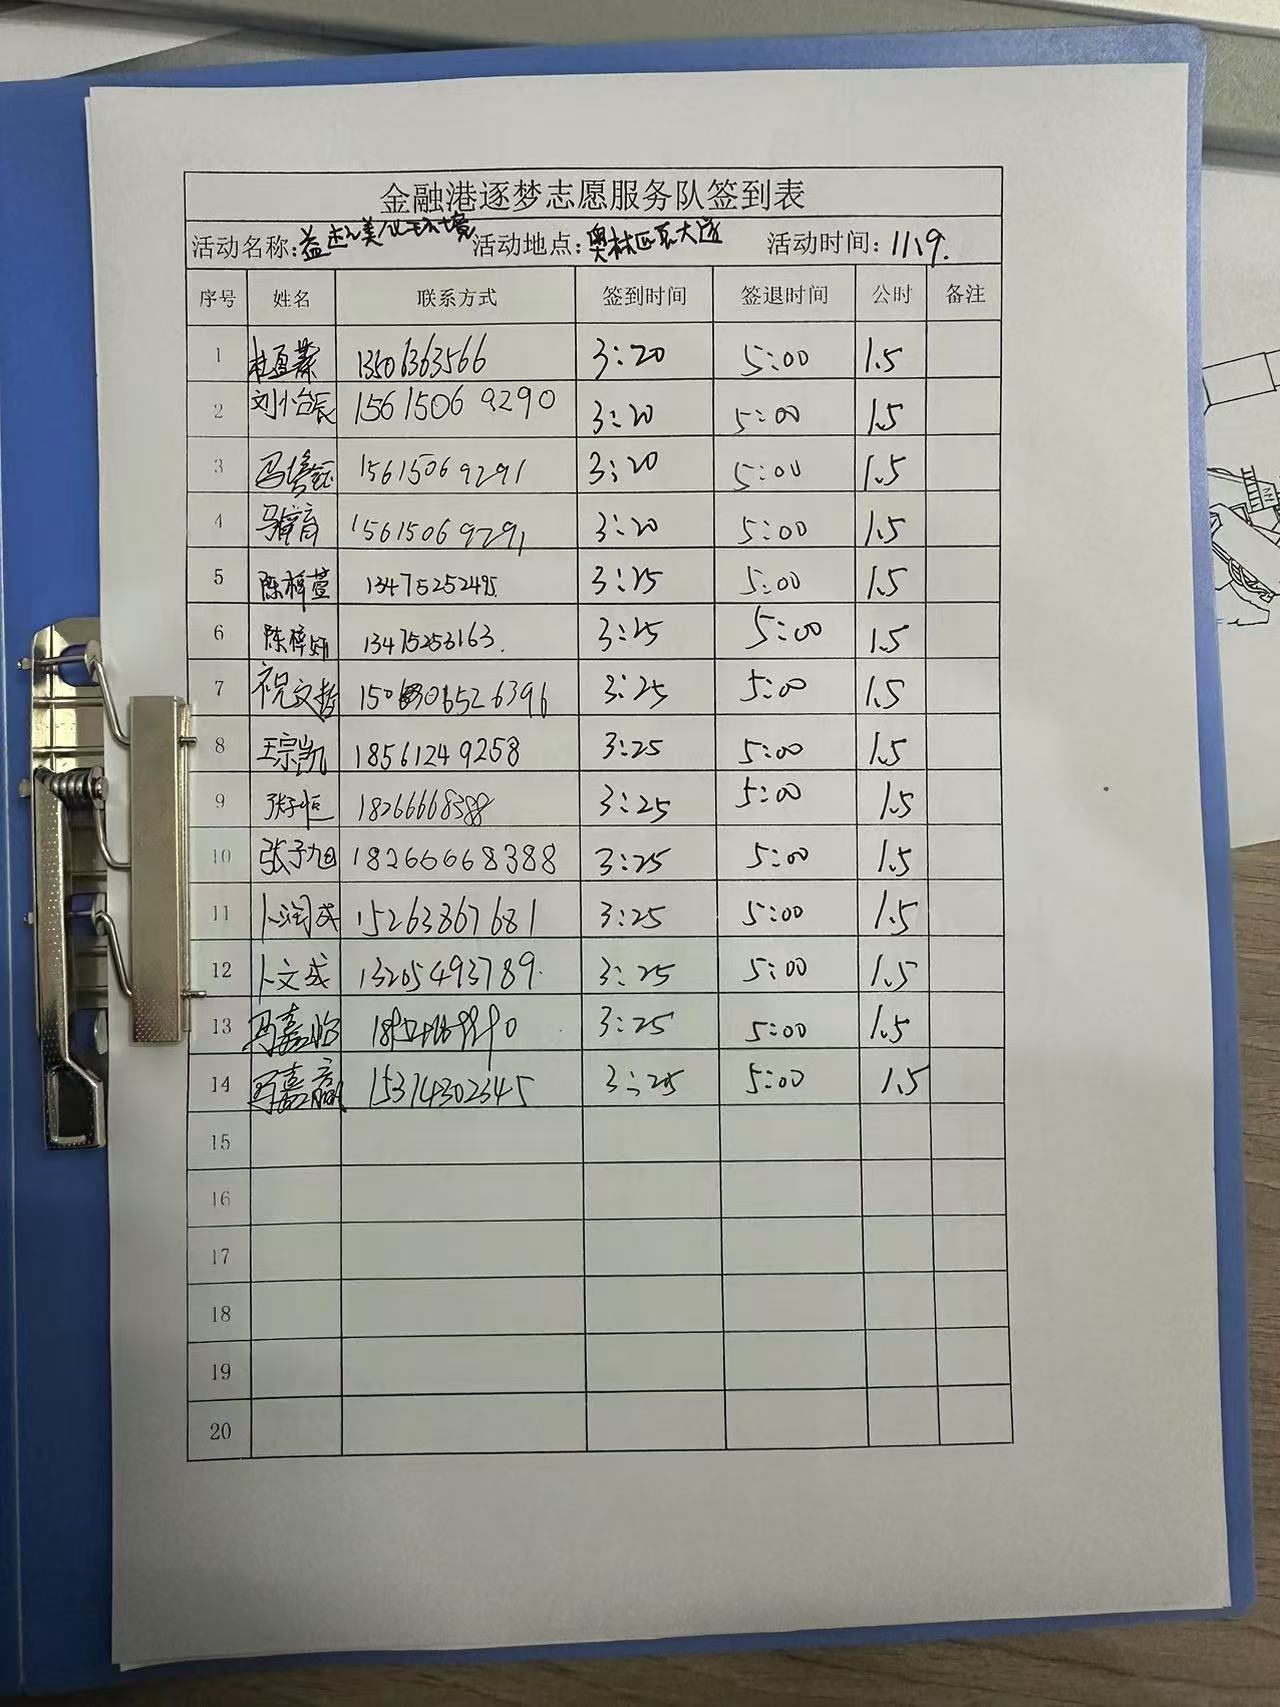 金融港逐梦志愿服务队签到表
活动名称:益起美化环境 活动地点:奥林匹克大道 活动时间:11.9.
序号 姓名 联系方式 签到时间 签退时间 公时 备注
1 杜盈蓁 13501363566 3:20 5:00 1.5
2 刘怡辰 15615069290 3:20 5:00 1.5
3 冯 15615069291 3:20 5:00 1.5
4 15615069291 3:20 5:00 1.5
5 陈梓萱 13475252495. 3:25 5:00 1.5
6 陈梓妍 13475253163. 3:25 5:00 1.5
7 祝文哲 3:25 5:00 1.5
8 王宗凯 18561249258 3:25 5:00 1.5
9 张子恒 18266668388 3:25 5:00 1.5
10 张子旭 18266668388 3:25 5:00 1.5
11 卜润成 15263867681 3:25 5:00 1.5
12 卜文成 13205493789. 3:25 5:00 1.5
13 冯嘉怡 3:25 5:00 1.5
14 冯嘉赢 15314302345 3:25 5:00 1.5
15
16
17
18
19
20